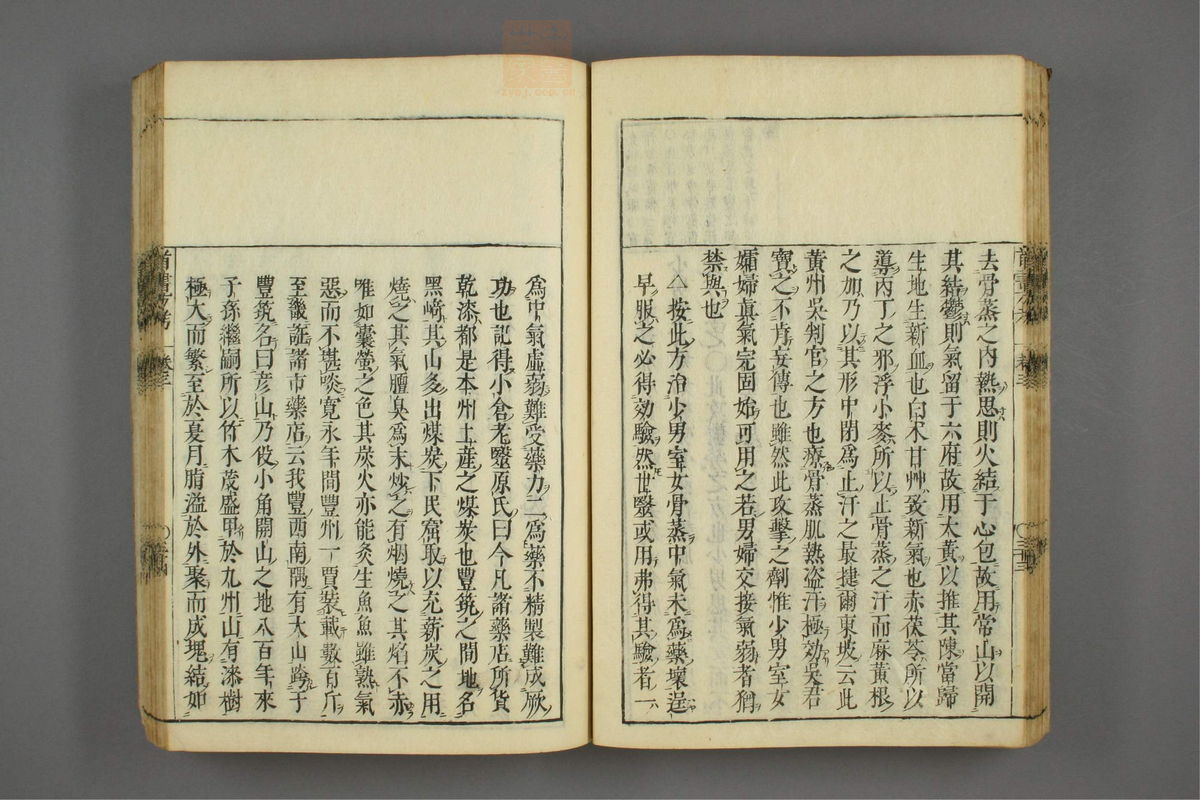 去骨蒸之內熱思則火結于心包故用常山以開
其結鬱則氣留于六府故用大黃以推其陳當歸
生地生新血也白朮甘艸致新氣也赤茯苓所以
導丙丁之邪浮小麥所以止骨蒸之汗而麻黃根
之加乃以其形中閉爲止汗之最捷爾東坡云此
黃州吳判官之方也療骨蒸肌熱盜汗極効吳君
寶之不肯妄傳也雖然此攻擊之劑惟少男室女
孀婦眞氣完固始可用之若男婦交接氣弱者猶
禁與也
△按此方治少男室女骨蒸中氣未爲藥壞逞
早服之必得効驗然世毉或用弗得其驗者一
爲中氣虛弱難受藥力二爲藥不精製難成厥
功也記得小倉老毉原氏曰今凡諸藥店所貨
乾漆都是本州土產之煤炭也豐筑之間地名
黑崎其山多出煤炭下民窟取以充薪炭之用
燒之其氣膻臭爲末炒之有烟燒之其焰不赤
唯如囊螢之色其炭火亦能灸生魚魚雖熟氣
惡而不堪啖寬永年間豐州一賈裝載數百斤
至畿誑諸市藥店云我豐西南隅有大山跨于
豐筑名曰彥山乃役小角開山之地八百年來
子孫繼嗣所以竹木茂盛甲於九州山有漆樹
極大而繁至於夏月脂溢於外聚而成塊結如
卷三
卷三